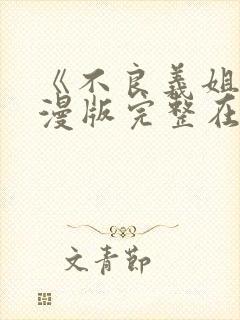 《不良義姐
漫版完整在
文青節